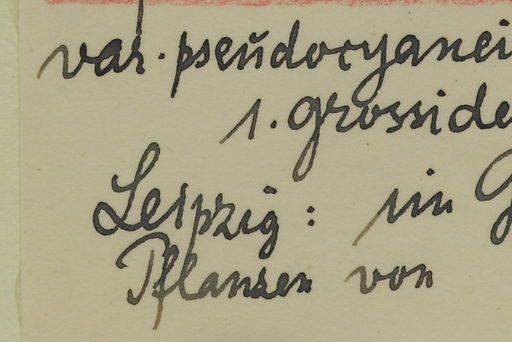 var. pseudocyanei
1. grosside
Leipzig: im G
Pflanzen von